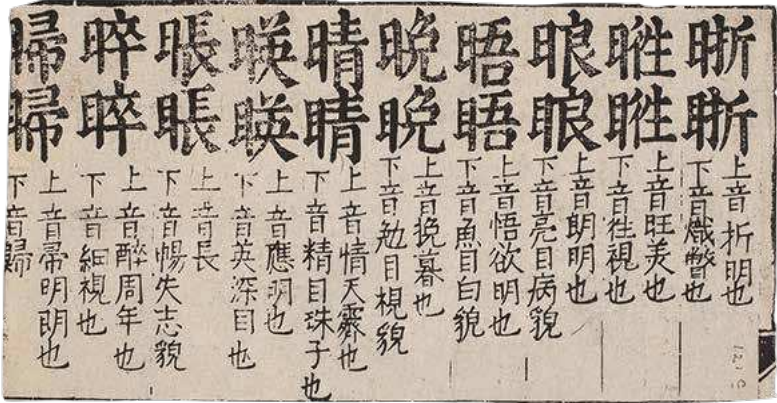 晣
上音折明也
下音熾瞥也
暀
上音旺美也
下音徃視也
㫰
䀶
上音朗明也
下音亮目病貌
晤
上音悟欲明也
下音魚目白貌
晚
睌
上音挽暮也
下音勉目視貌
晴
睛
上音情天霽也
下音精目珠子也
暎
上音應明也
下音英深目也
上音長
下音暢失志貌
晬
睟
上音醉周年也
下音細視也
上音帚明朗也
下音歸